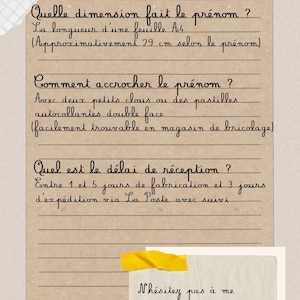 Quelle dimension fait le prénom ?
La longueur d'une feuille A4
(Approximativement 29 cm selon le prénom)
Comment accrocher le prénom ?
Avec deux petits clous ou des pastilles
autocollantes double face
(facilement trouvable en magasin de bricolage)
Quel est le délai de réception ?
Entre 1 et 5 jours de fabrication et 3 jours
d'expédition via La Poste avec suivi
N'hésitez pas à me